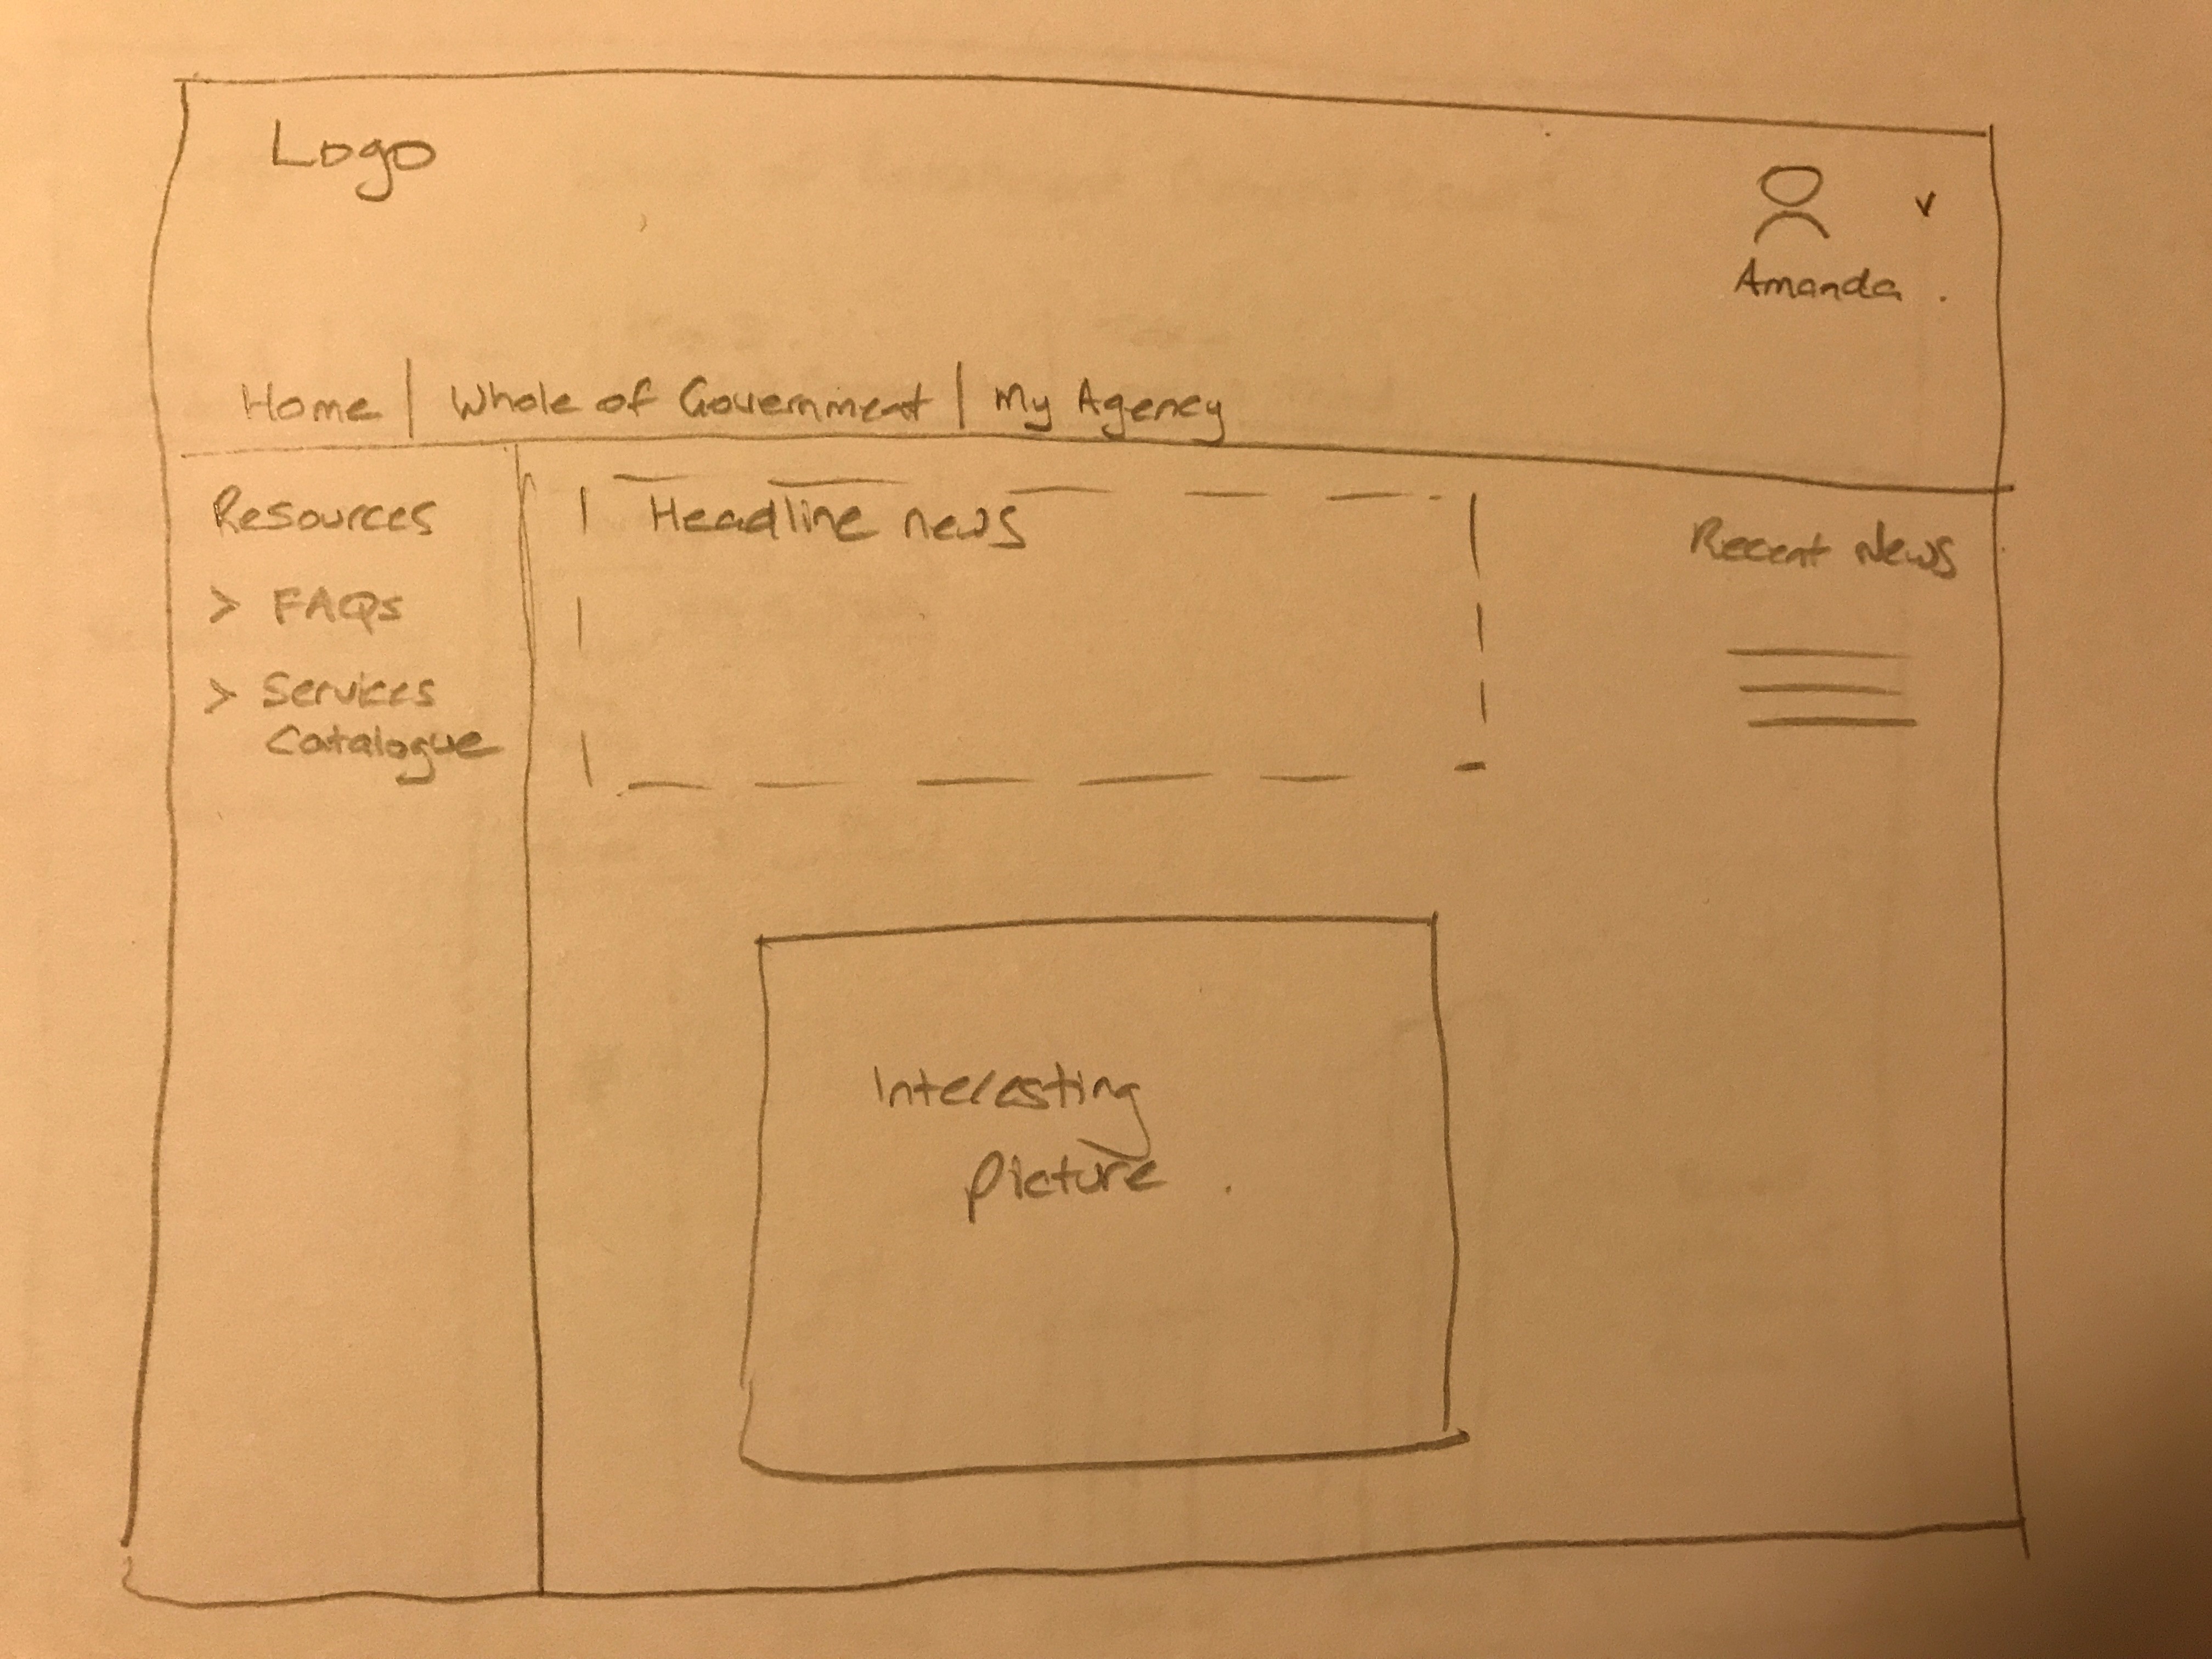 Logo
Amanda
Home | Whole of Government | My Agency
Resources
> FAQs
> Services
Catalogue
Headline news
Recent News
Interesting
picture